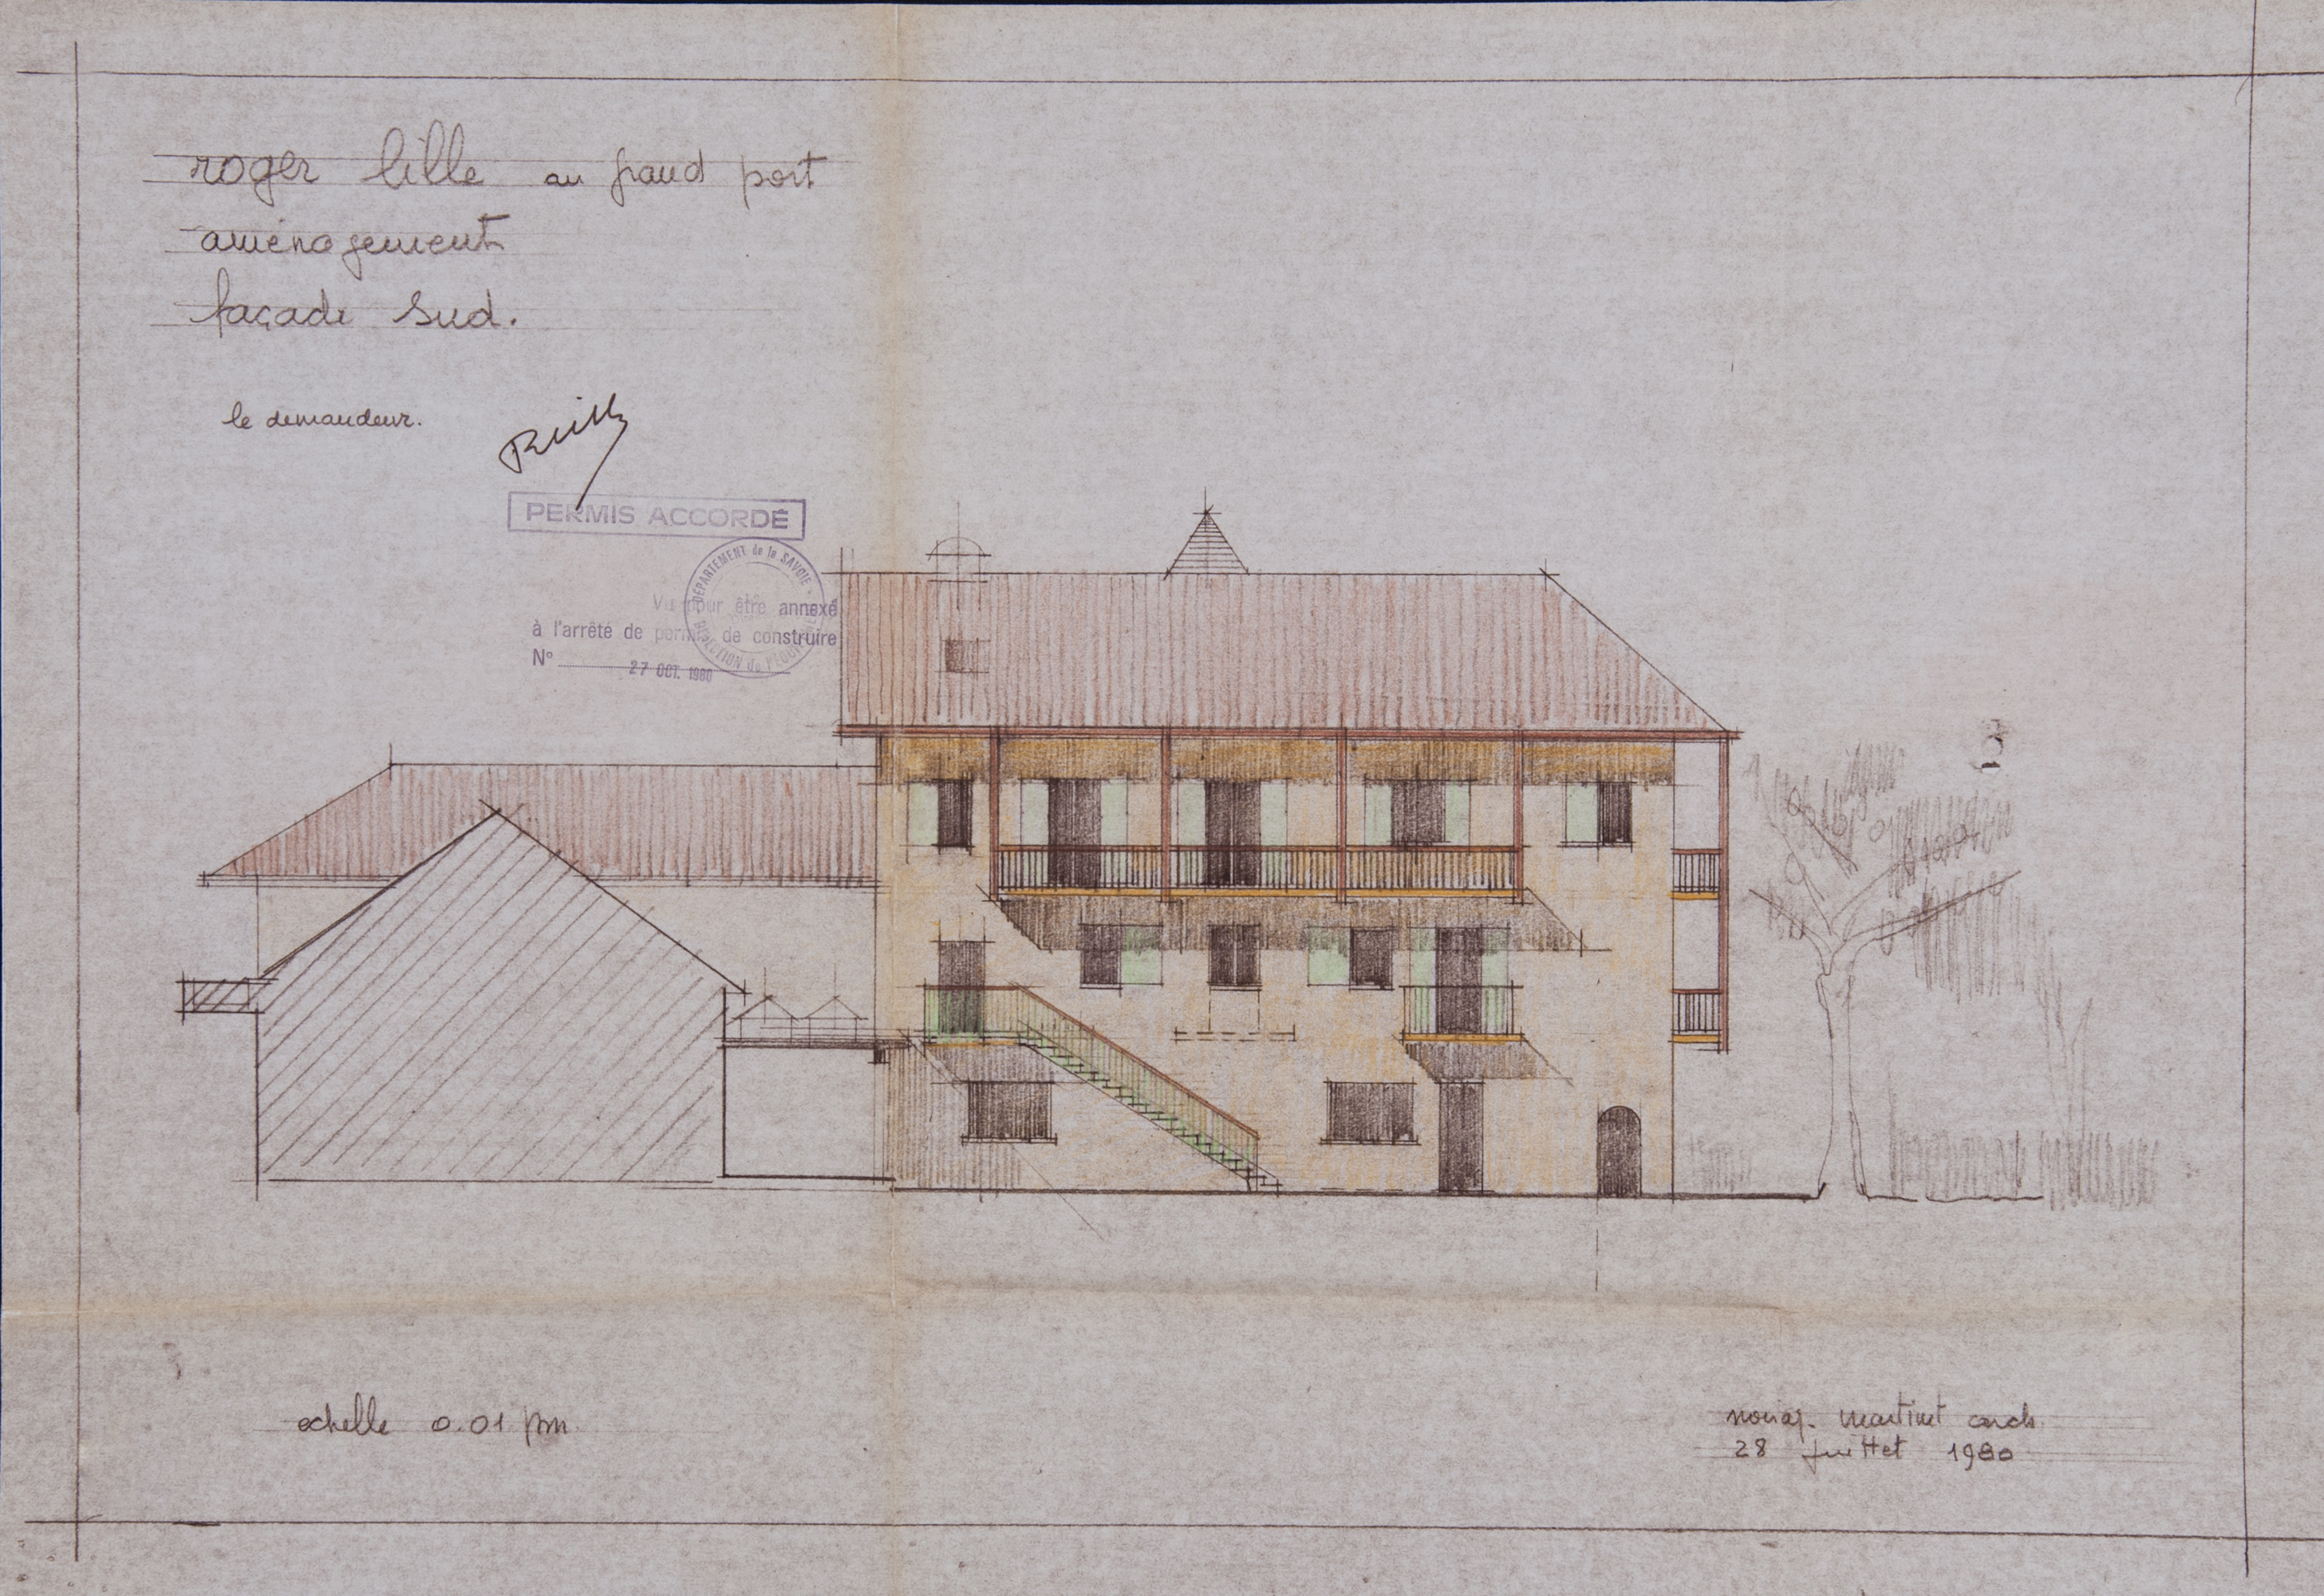 roger lille au grand port
aménagement
façade sud.
le demandeur.
PERMIS ACCORDÉ
DÉPARTEMENT de la SAVOIE
DIRECTION de l'ÉQUIPEMENT
Vu pour être annexé
à l'arrêté de permis de construire
N°
27 OCT. 1980
echelle 0.01 pm.
martinet arch.
28 juillet 1980